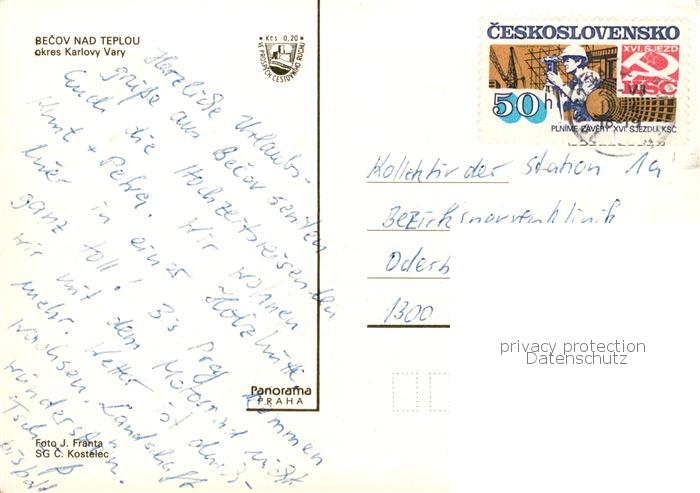 BEČOV NAD TEPLOU
okres Karlovy Vary
Kčs 0,20
VE PROSPĚCH CESTOVNÍHO RUCHU
ČESKOSLOVENSKO
XVI. SJEZD
KSČ
50 h
PLNÍME ZÁVĚRY XVI. SJEZDU KSČ
Herzliche Urlaubs-
grüße aus Bečov senden
Euch die Hochzeitsreisenden
Knut + Petra. Wir wohnen
hier in einer Holzhütte
ganz toll! Bis Prag kommen
wir mit dem Motorrad nicht
mehr. Wetter ist durch-
wachsen. Landschaft
wunderschön.
Tschüß
Kollektiv der Station 1a
Bezirksnervenklinik
Oderb
1300
privacy protection
Datenschutz
Panorama
PRAHA
Foto J. Franta
SG Č. Kostelec